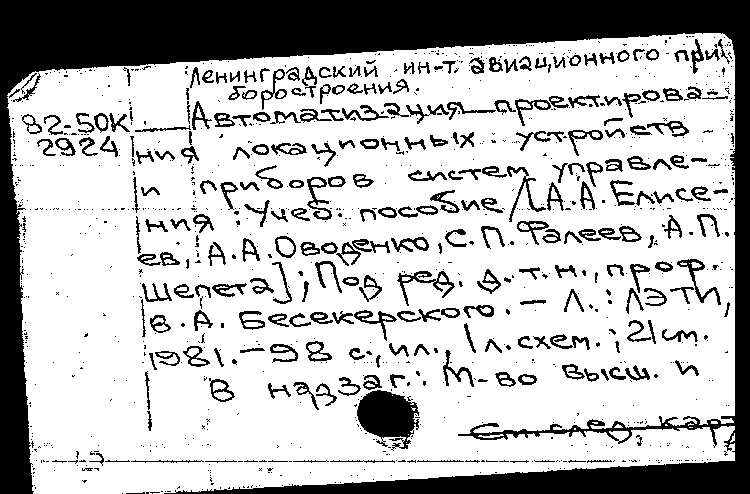 Ленинградский ин-т. авиационного при
боростроения.
82-50К
2924
Автоматизация проектирова-
ния локационных устройств
и приборов систем управле-
ния : Учеб. пособие / [А.А. Елисе-
ев, А.А. Оводенко, С.П. Фалеев, А.П.
Шепета] ; Под ред. д.т.н., проф.
В.А. Бесекерского. — Л. : ЛЭТИ,
1981. — 98 с., ил., 1 л. схем. ; 21 см.
В надзаг.: М-во высш. и
См. след. карт